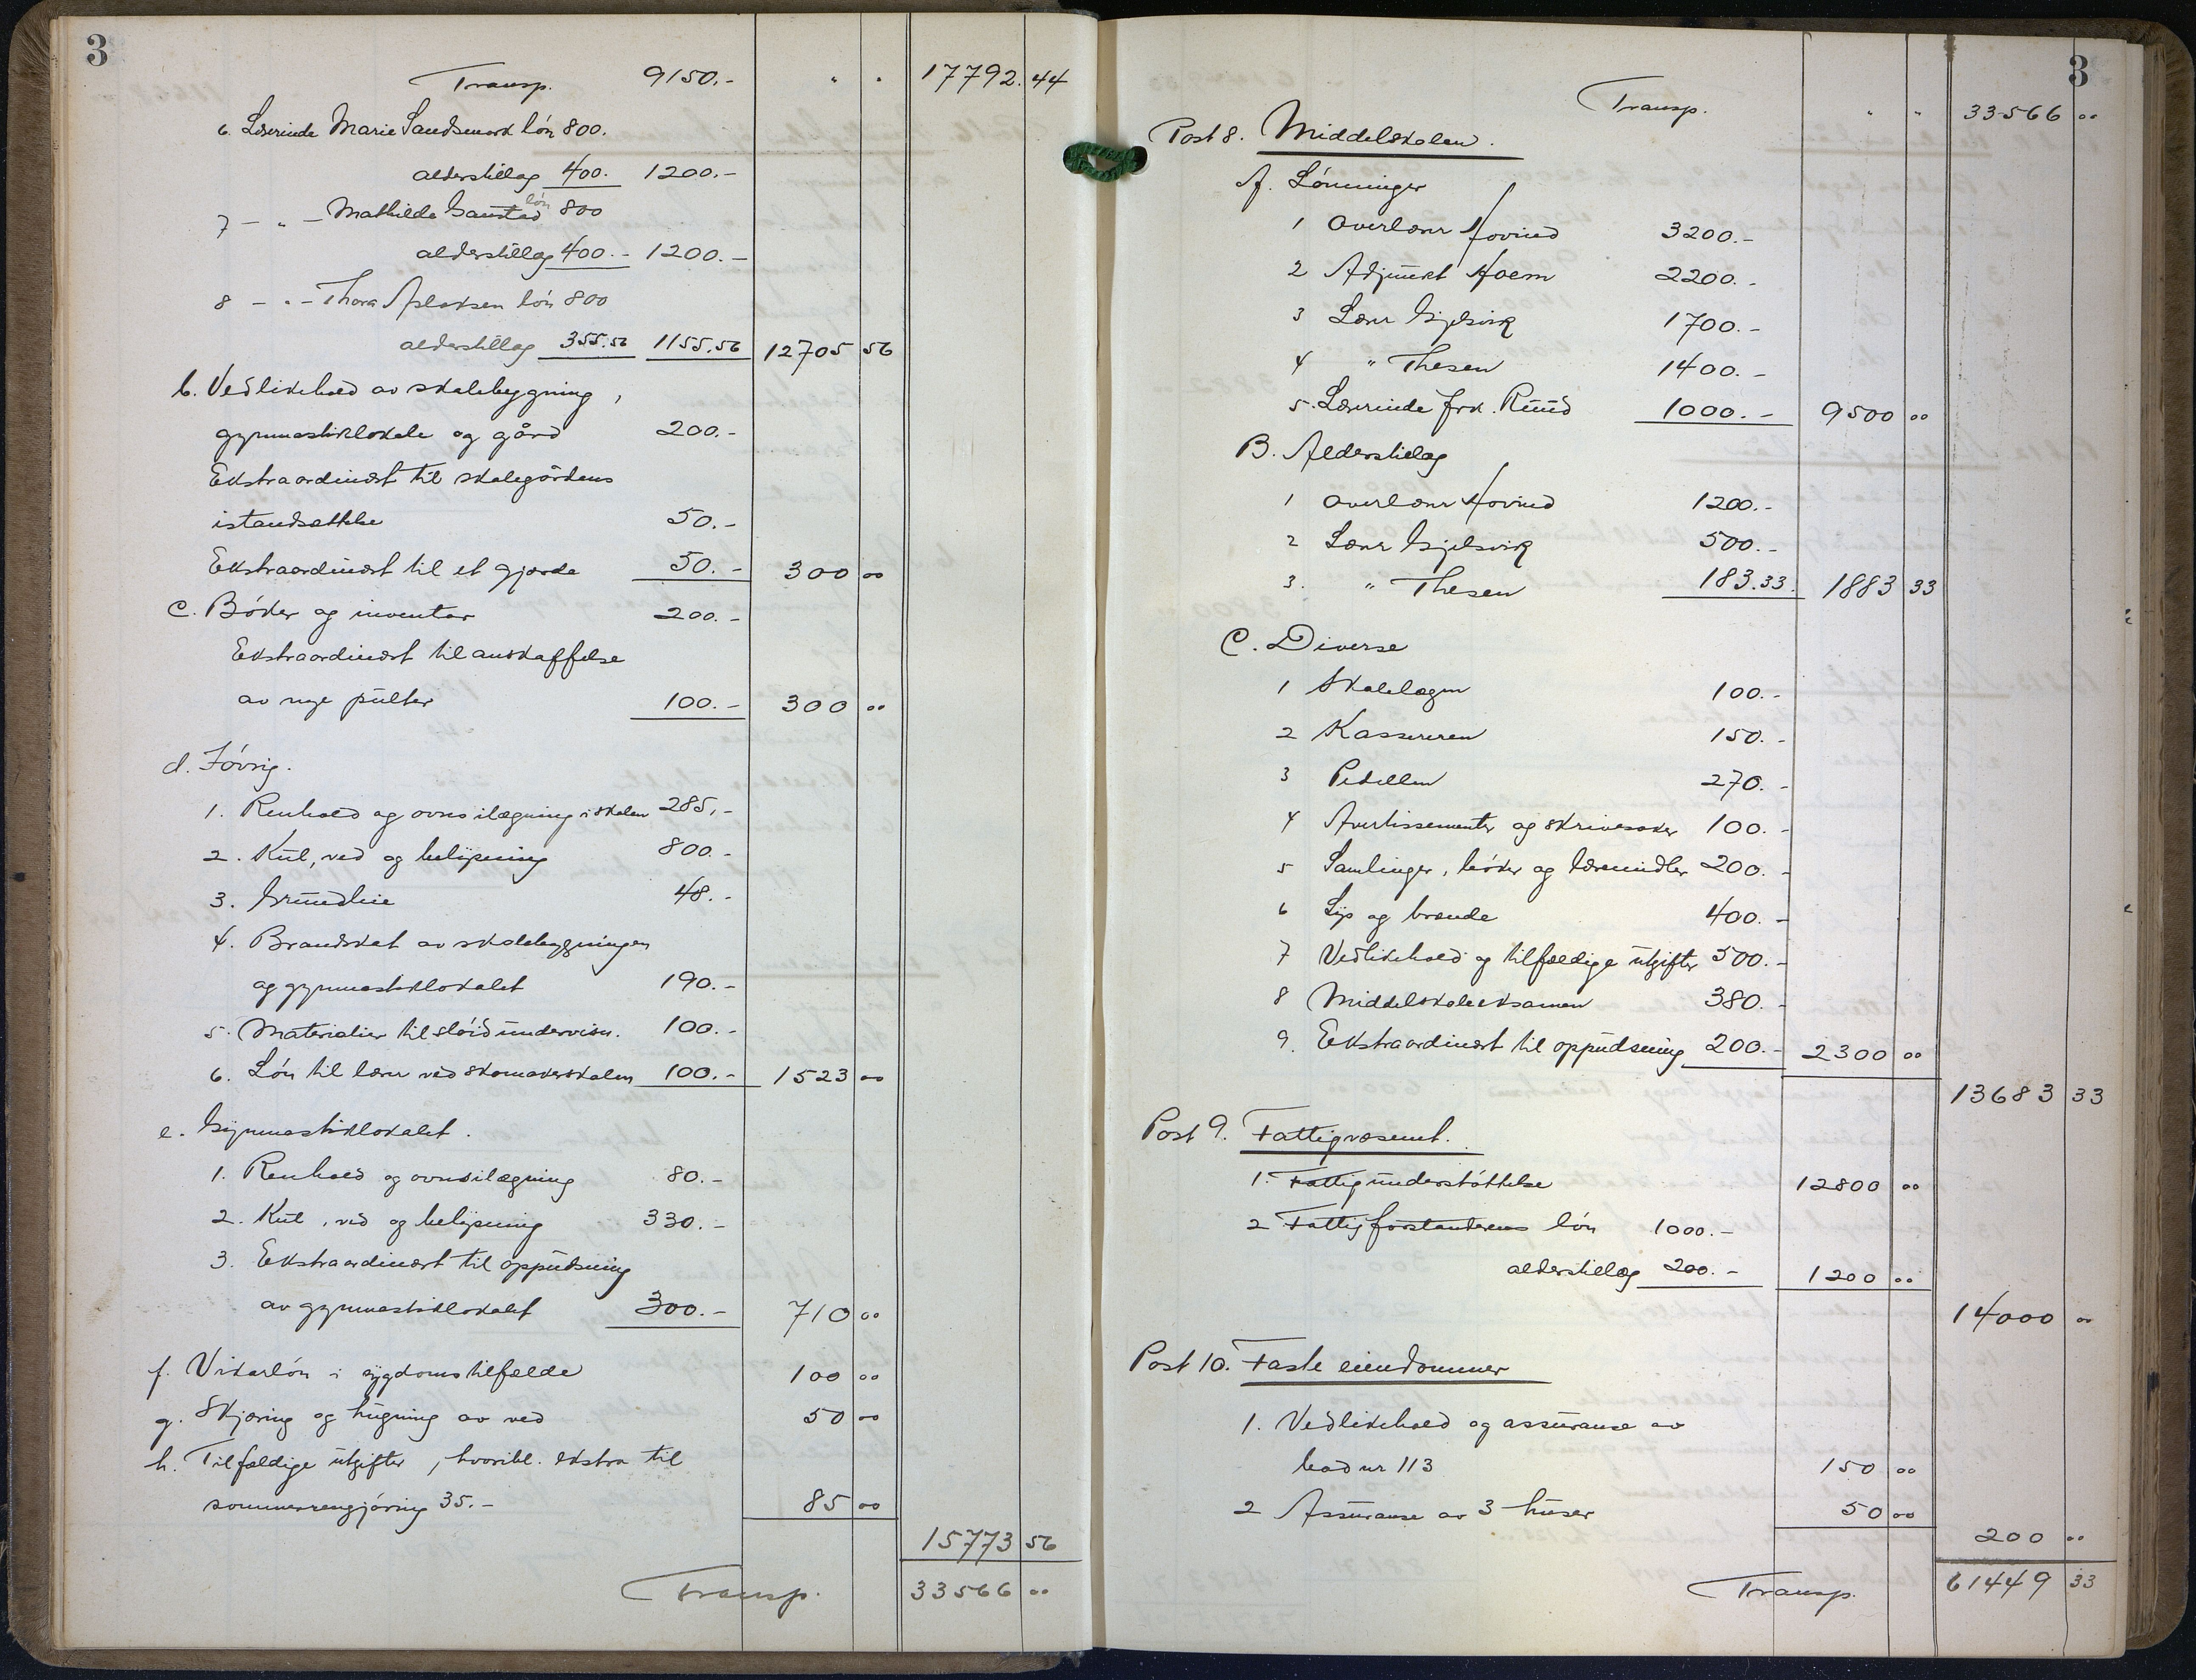 3
Transp. 9150.- " " 17792.44
6. Lærerinde Marie Sandsmark løn 800.
alderstillæg 400. 1200.-
7 - " - Mathilde Ganstad løn 800
alderstillæg 400.- 1200.-
8 - " - Thora Aslaksen løn 800
alderstillæg 355.56 1155.56 12705 56
b. Vedlikehold av skolebygning,
gymnastiklokale og gård 200.-
Ekstraordinært til skolegårdens
istandsættelse 50.-
Ekstraordinært til et gjærde 50.- 300 00
c. Bøker og inventar 200.-
Ekstraordinært til anskaffelse
av nye pulter 100.- 300 00
d. Iøvrig.
1. Renhold og ovnsilægning i skolen 285,-
2. Kul, ved og belysning 800.-
3. Grundleie 48.-
4. Brandskat av skolebygningen
og gymnastiklokalet 190.-
5. Materialier til sløidundervisn. 100.-
6. Løn til lærer ved skomakerskolen 100.- 1523 00
e. Gymnastiklokalet.
1. Renhold og ovnsilægning 80.-
2. Kul, ved og belysning 330.-
3. Ekstraordinært til oppudsning
av gymnastiklokalet 300.- 710 00
f. Vikarløn i sygdomstilfælde 100 00
g. Skjæring og hugning av ved 50 00
h. Tilfældige utgifter, hvoribl. ekstra til
sommerrengjøring 35.- 85 00
15773 56
Transp. 33566 00
3
Transp. " " 33566 00
Post 8. Middelskolen.
A. Lønninger
1 Overlærer Hovind 3200.-
2 Adjunkt Hoem 2200.-
3 Lærer Gjelsvik 1700.-
4 " Thesen 1400.-
5. Lærerinde frk. Ruud 1000.- 9500 00
B. Alderstillæg
1 Overlærer Hovind 1200.-
2 Lærer Gjelsvik 500.-
3. " Thesen 183.33. 1883 33
C. Diverse
1 Skolelægen 100.-
2 Kassereren 150.-
3 Pedellen 270.-
4 Avertissementer og skrivesaker 100.-
5 Samlinger, bøker og læremidler 200.-
6 Lys og brænde 400.-
7 Vedlikehold og tilfældige utgifter 500.-
8 Middelskoleeksamen 380.-
9. Ekstraordinært til oppudsning 200.- 2300 00
13683 33
Post 9. Fattigvæsenet.
1. Fattigunderstøttelse 12800 00
2 Fattigforstanderens løn 1000.-
alderstillæg 200.- 1200 00
14000 00
Post 10. Faste eiendommer
1. Vedlikehold og assuranse av
bod nr 113 150 00
2 Assuranse av 3 huser 50 00
200 00
Transp. 61449 33